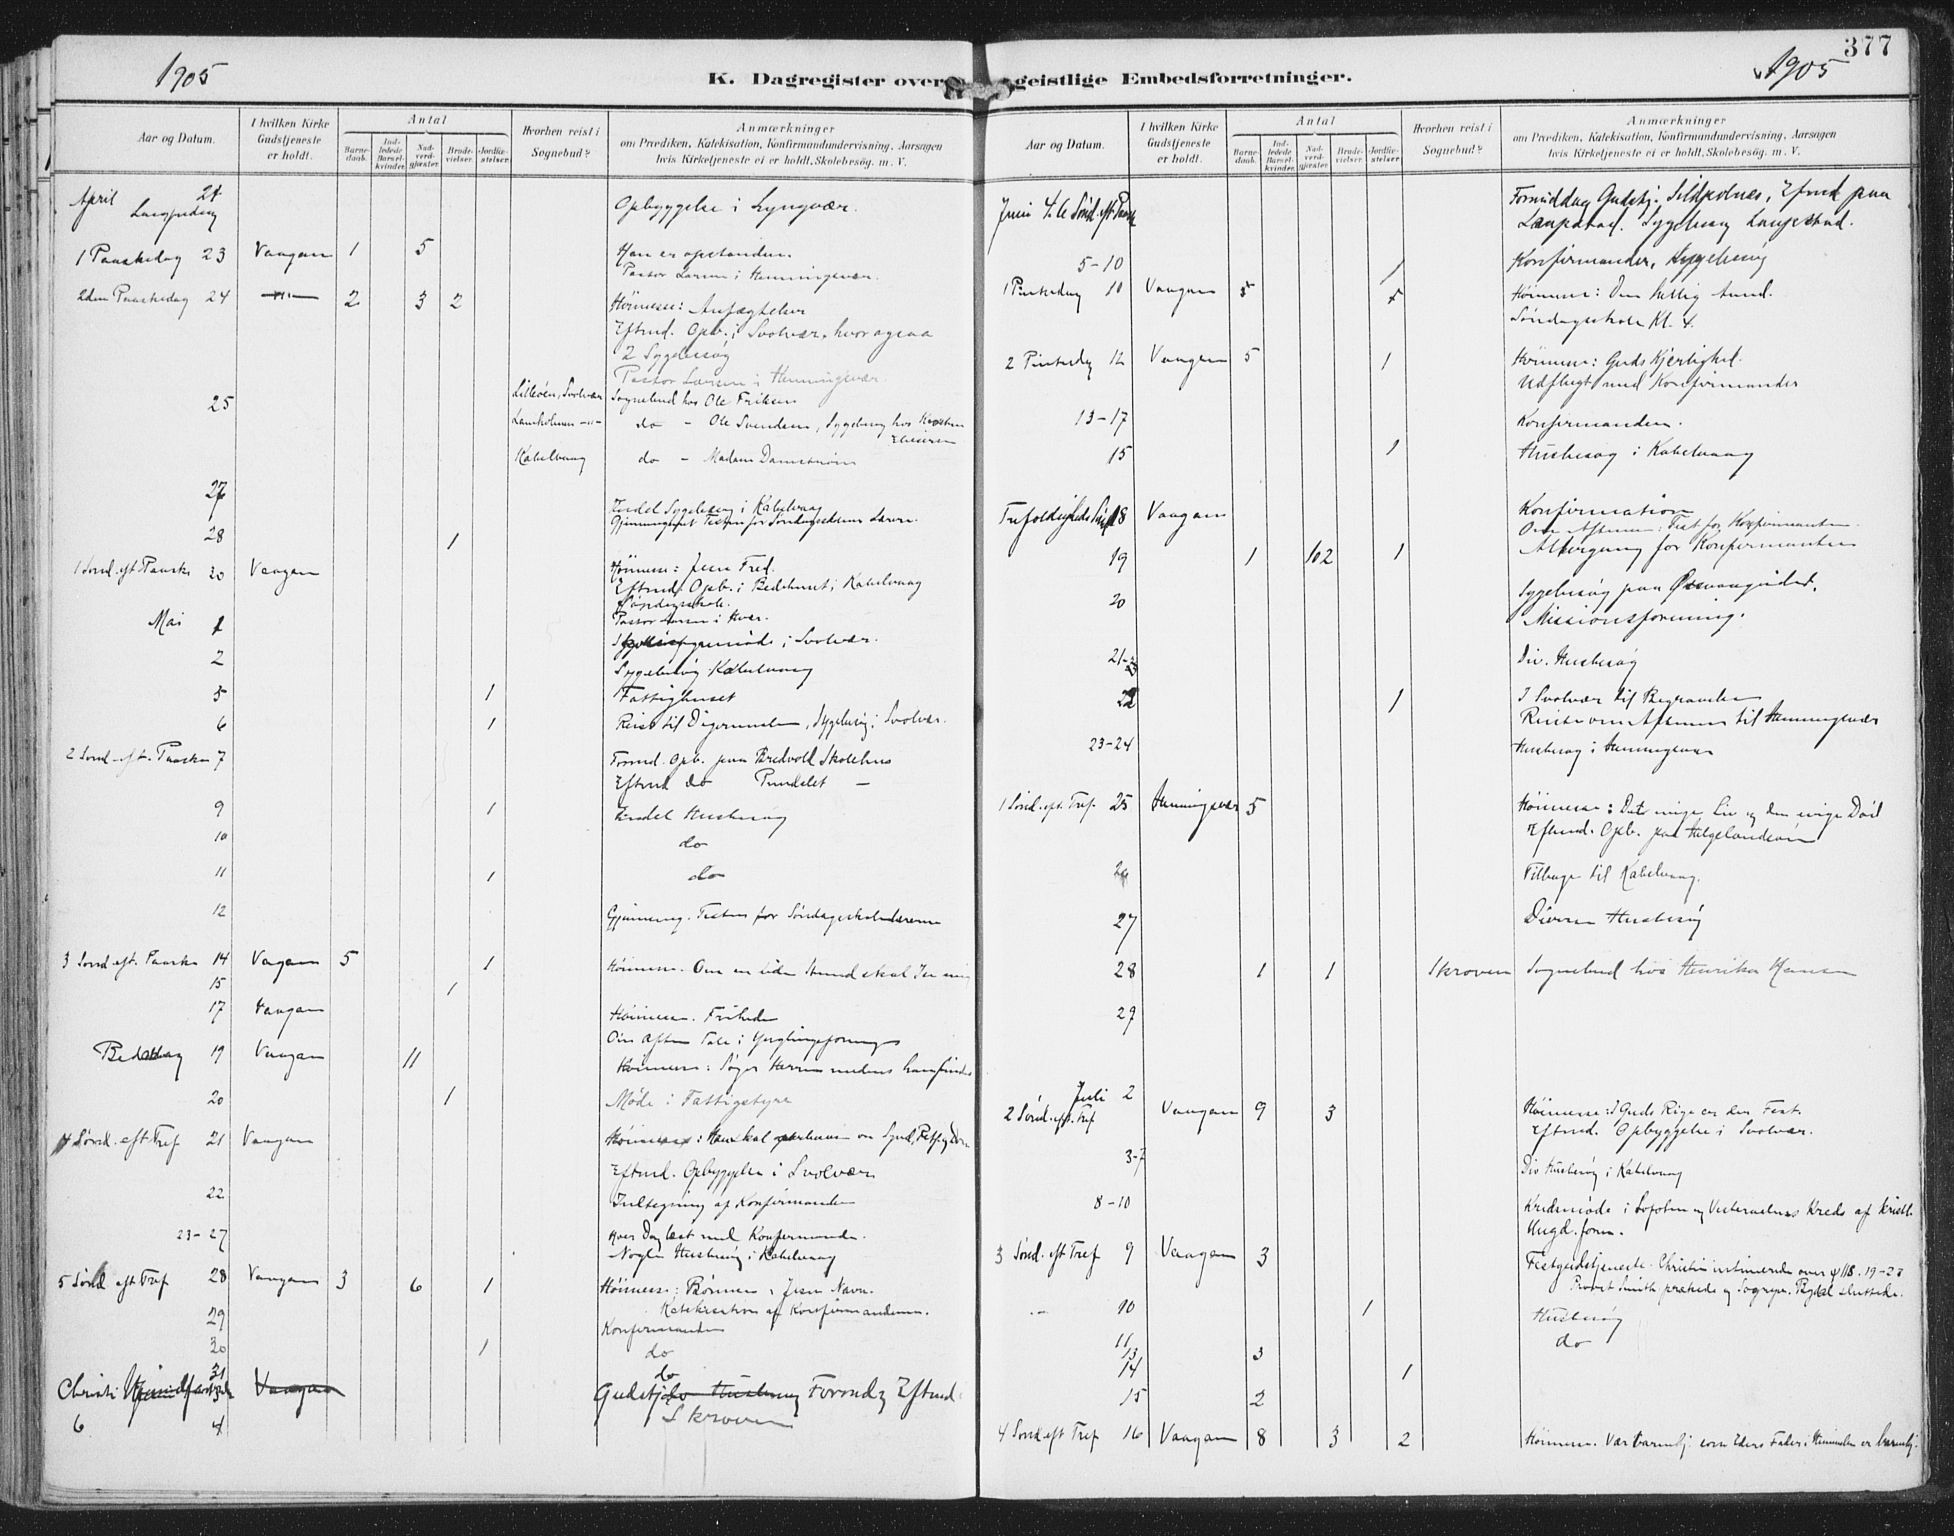 1905
K. Dagregister over geistlige Embedsforretninger.
1905
377
Aar og Datum.
I hvilken Kirke Gudstjeneste er holdt.
Antal
Barnedaab.
Indledede Barselkvinder.
Nadverdgjæster.
Brudevielser.
Jordfæstelser.
Hvorhen reist i Sognebud?
Anmærkninger
om Prædiken, Katekisation, Konfirmandundervisning, Aarsagen
hvis Kirketjeneste ei er holdt, Skolebesøg m. V.
April 21 Langfredag Opbyggelse i Lyngvær.
1 Paaskedag 23 Vaagan 1 5 Han er opstanden.
Pastor Larsen i Henningsvær.
2den Paaskedag 24 —"— 2 3 2 Höimesse: Anfægtelser
Eftmd. Opb. i Svolvær, hvor ogsaa
2 Sygebesøg
Pastor Larsen i Henningsvær
25 Lilleöen, Svolvær Sognebud hos Ole Eriksen
Lamholmen —"— do - Ole Svendsen, Sygebesøg hos
Kabelvaag do - Madam Damström
27 Endel Sygebesøg i Kabelvaag
Gjennemg. Texten for Søndagsskolens Lærere.
28 1
1 Sönd. eft. Paaske 30 Vaagan Höimesse: Jesu Fred.
Eftmd. Opb. i Bedehuset i Kabelvaag
Søndagsskole.
Pastor Larsen i Hvær.
Mai 1 i Svolvær.
2 Sygebesøg Kabelvaag
5 1 Fattighuset
6 1 Reise til Digermulen, Sygebesøg i Svolvær.
2 Sönd. eft. Paaske 7 Formd. Opb. paa Bredvold Skolehus
Eftmd do Pundslet —
9 1 Endel Husbesøg
10 do
11 1 do
12 Gjennemg. Texten for Søndagsskolelærerne
3 Sönd. eft. Paaske 14 Vagan 5 1 Höimesse. Om en liden Stund skal I se mig
15 1
17 Vaagan Höimesse. Friheden
Om Aften Tale i Ynglingeforening
Bededag 19 Vaagan 11 Höimesse: Søger Herren medens han findes
20 1 Møde i Fattigstyre
4 Sönd. eft. Tref 21 Vaagan Höimesse: Han skal overbevise om Synd, Retf. og Dom
Eftmd. Opbyggelse i Svolvær
22 Indtegning af Konfirmander
23-27 Hver Dag læst med Konfirmander.
Nogle Husbesøg i Kabelvaag
5 Sönd eft Tref 28 Vaagan 3 6 1 Höimesse: Bönnen i Jesu Navn.
Katekisation af Konfirmanderne.
29 Konfirmander
30 1 do
31 do
Christi Himmelfartsdag Vaagan Gudstj. Husbesøg Formd og Eftmd.
6 4 Skroven
Aar og Datum.
I hvilken Kirke Gudstjeneste er holdt.
Antal
Barnedaab.
Indledede Barselkvinder.
Nadverdgjæster.
Brudevielser.
Jordfæstelser.
Hvorhen reist i Sognebud?
Anmærkninger
om Prædiken, Katekisation, Konfirmandundervisning, Aarsagen
hvis Kirketjeneste ei er holdt, Skolebesøg m. V.
Juni 4 Sönd. eft. Paaske Formiddag Gudstj. Sildpolnes, Eftmd paa
Laupstad. Sygebesøg Laupstad.
5-10 1 Konfirmander, Sygebesøg
1 Pintsedag 10 Vaagan 5 Höimesse: Den hellig Aand.
Søndagsskole Kl. 4.
2 Pintsedg 12 Vaagan 5 1 Höimesse: Guds Kjærlighed.
Udflugt med Konfirmander
13-17 Konfirmander.
15 1 Husbesøg i Kabelvaag
Trefoldigheds Sönd 18 Vaagan Konfirmation
Om Aftenen: Fest for Konfirmanter.
19 1 102 1 Altergang for Konfirmanter
20 Sygebesøg paa
Missionsforening.
21- Div. Husbesøg
22 1 I Svolvær til Begravelse
Reiste om Aftenen til Henningsvær
23-24 Husbesøg i Henningsvær
1 Sönd. eft. Tref. 25 Henningsvær 5 Höimesse: Det evige Liv og den evige Död
Eftmd. Opb. paa Helgelandsöen
26 Tilbage til Kabelvaag.
27 Diverse Husbesøg
28 1 1 Skroven Sognebud hos Henrika Hansen
29
Juli 2
2 Sönd. eft. Tref Vaagan 9 3 Höimesse: I Guds Rige er der Fest.
Eftmd. Opbyggelse i Svolvær.
3-7 Div Husbesøg i Kabelvaag
8-10 Kredsmöde i Lofoten og Vesteraalens Kreds af kristl.
Ungd. foren.
3 Sönd. eft Tref 9 Vaagan 3 Festgudstjeneste. Christin intimerede over ψ 118. 19-23
Provst Smith prækede og Sogrepr. Bydal sluttede.
10 1 Husbesøg
11 do
13 3
14 1
15 2
4 Sönd eft Tref 16 Vaagan 8 3 2 Höimesse. Vær barmhj. som Eders Fader i Himmelen er barmhj.